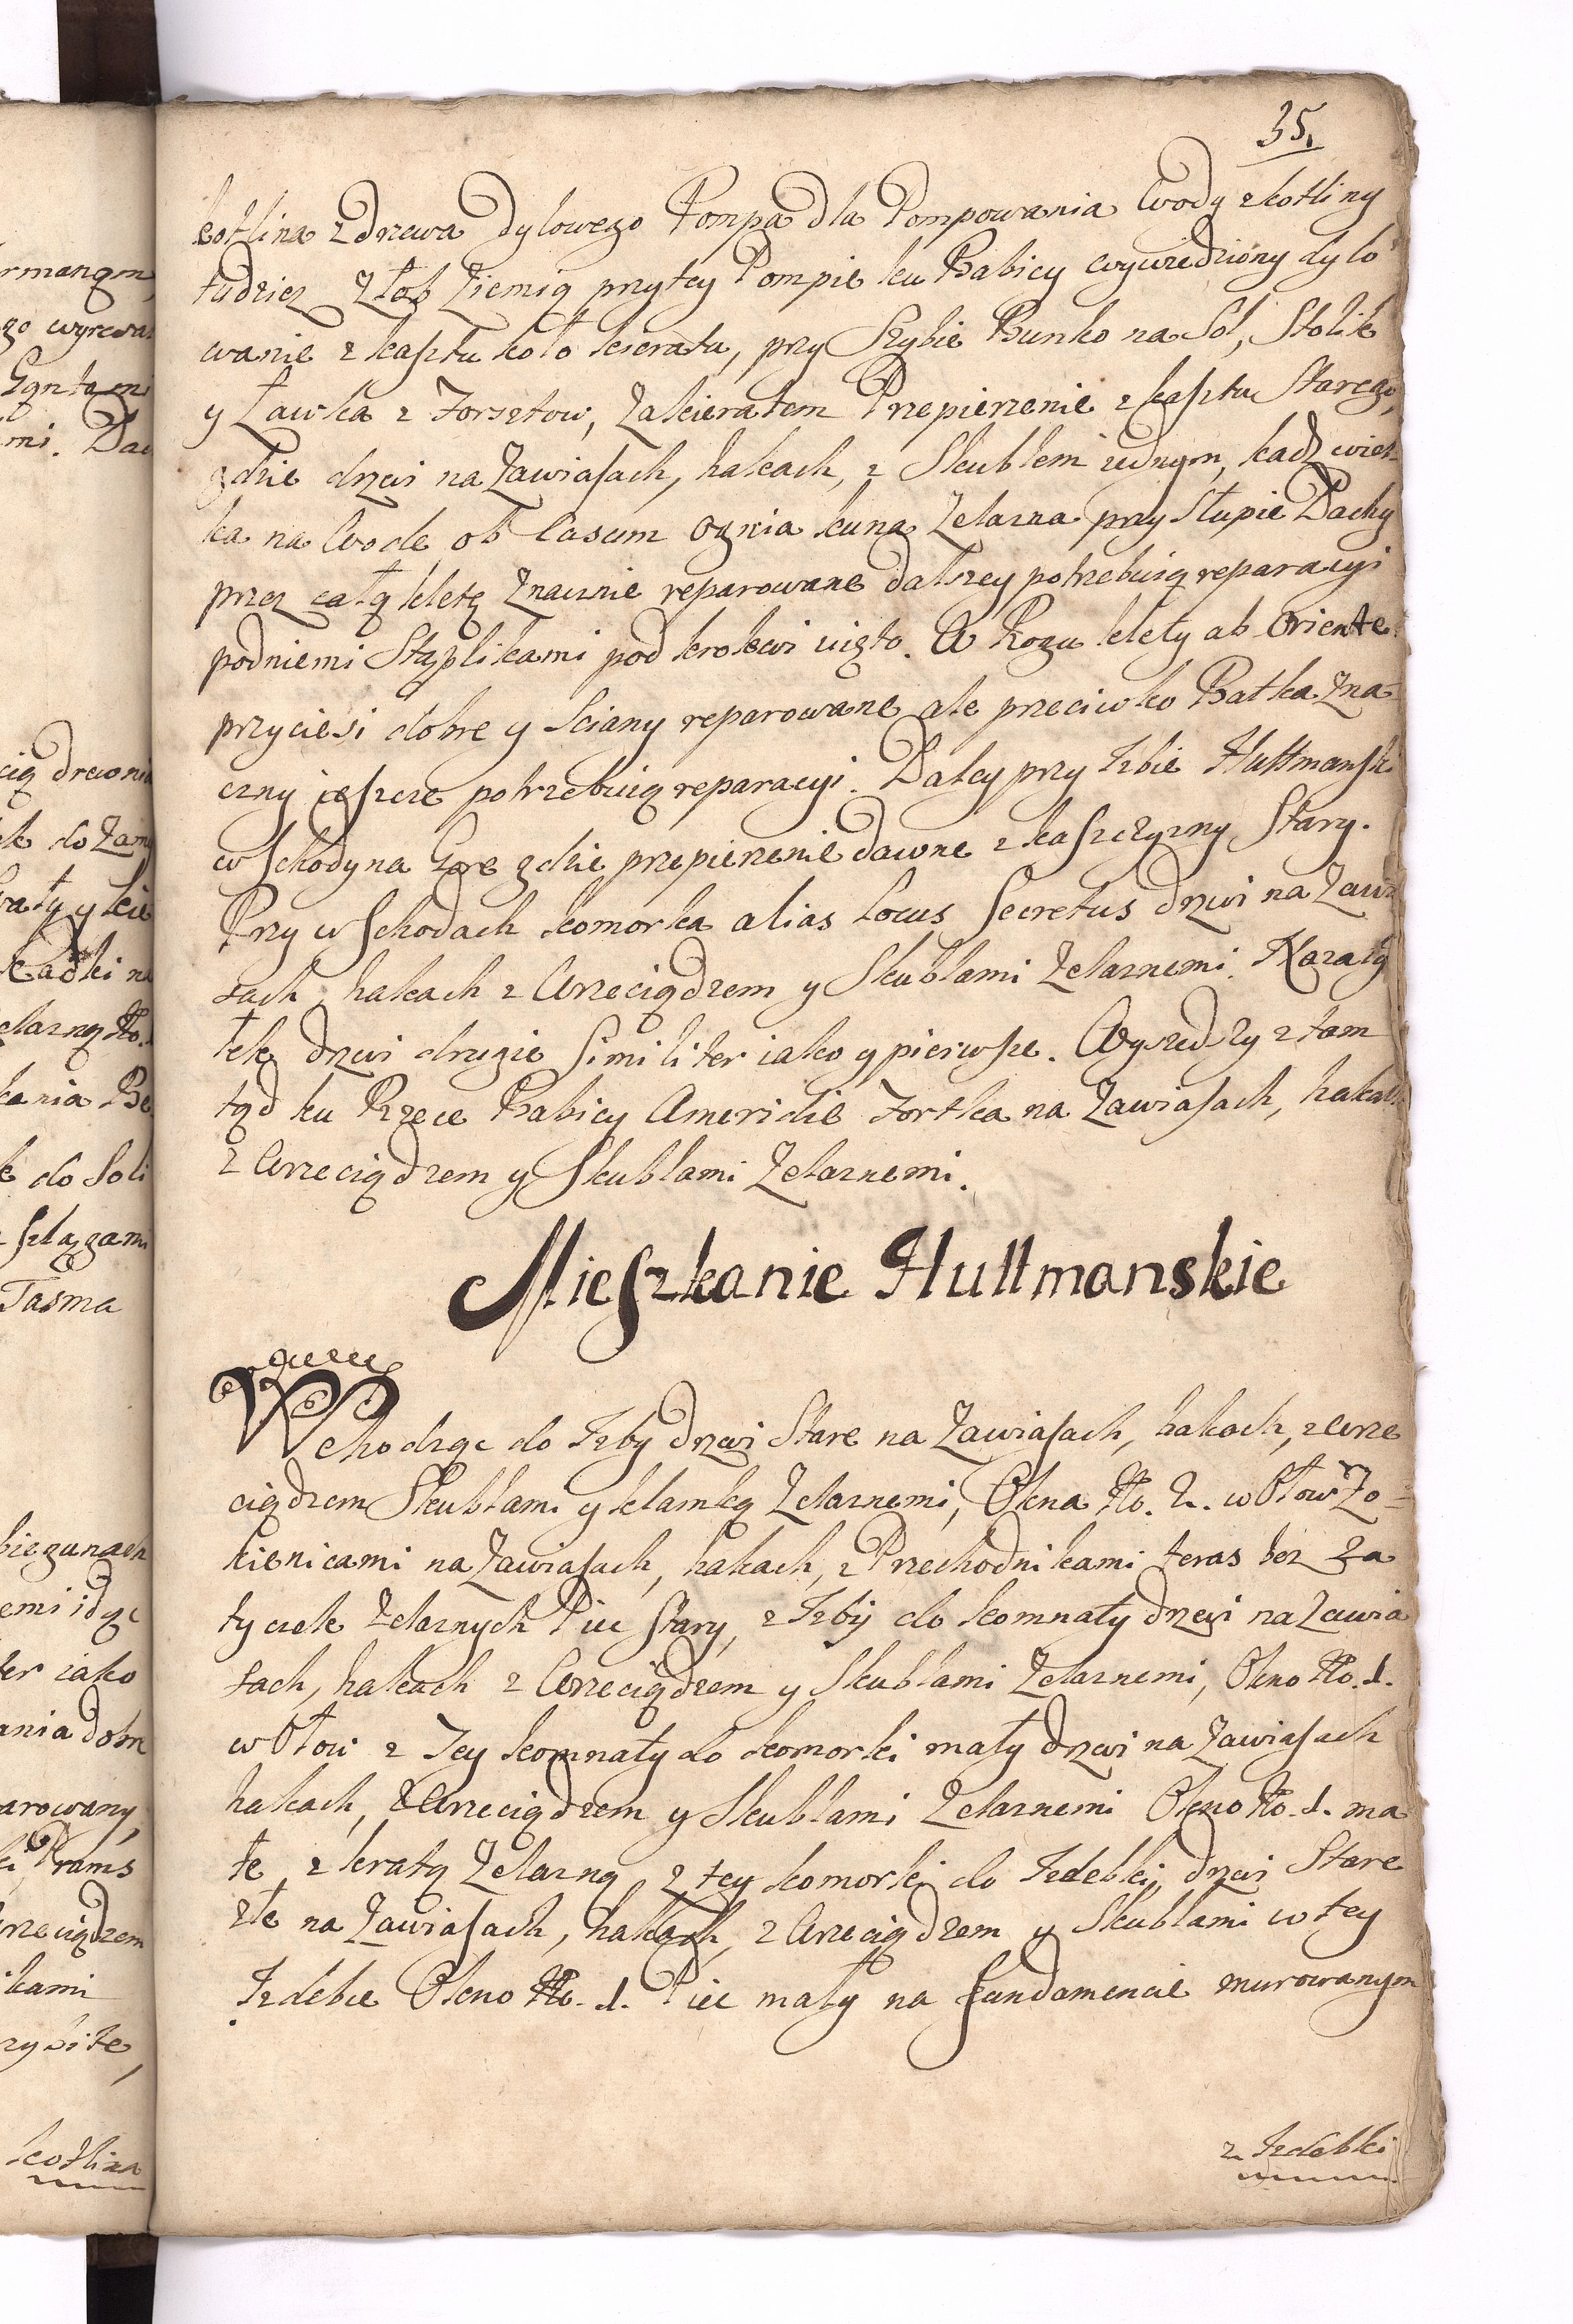 35.
kotlina z drzewa dylowego Pompa dla Pompowania Wody z kotliny
tudziez Złob Ziemią przytey Pompie ku Babicy wywiedziony dylo
wanie z kasztu koło kierata, przy Szybie Bunko na Sol, Stolik
y Ławka z Forsztow, Zakieratem Przepierzenie z kasztu Starego,
gdzie drzwi na Zawiasach, hakach, z Skublem iednym, kadz wiel-
ka na Wode ob Casum Ognia kuna Zelazna przy Słupie Dachy
przez całą kletę Znacznie reparowane dalszey potrzebuią reparacyi
podniemi Stąplikami pod krokwi uięto. A Rogu klety ab Oriente
przyciesi dobre y Sciany reparowane ale przeciwko Batka Zna-
czny ieszcze potrzebuią reparacyi. Daley przy Izbie Huttmanski
wschody na Gore gdzie przepierzenie dawne z kaszczyzny Stary.
Przy wschodach komorka alias Locus Secretus drzwi na Zawia
sach, hakach z Wrzeciądzem y Skublami Zelaznemi. Nazały
tek drzwi drugie Similiter iako y pierwsze. Wyszedszy z tam
tąd ku Rzece Babicy Ameridie Fortka na Zawiasach, hakach
z Wrzeciądzem y Skublami Zelaznemi.
Mieszkanie Huttmanskie
Wchodząc do Izby drzwi Stare na Zawiasach, hakach, z Wrze
ciądzem Skublami y klamką Zelaznemi, Okna No. 2. w Ołow Zo-
kienicami na Zawiasach, hakach, z Przechodnikami teras bez Za
tyczek Zelaznych Piec Stary, z Izby do komnaty drzwi na Zawia
sach, hakach z Wrzeciądzem y Skublami Zelaznemi, Okno No. 1.
w Ołow z Tey komnaty do komorki mały drzwi na Zawiasach
hakach, z Wrzeciądzem y Skublami Zelaznemi Okno No. 1. ma
łe, z kratą Zelazną, z tey komorki do Izdebki, drzwi Stare
złe na Zawiasach, hakach, z Wrzeciądzem y Skublami w tey
Izdebce Okno No. 1. Piec mały na fundamencie murowanym
z Izdebki